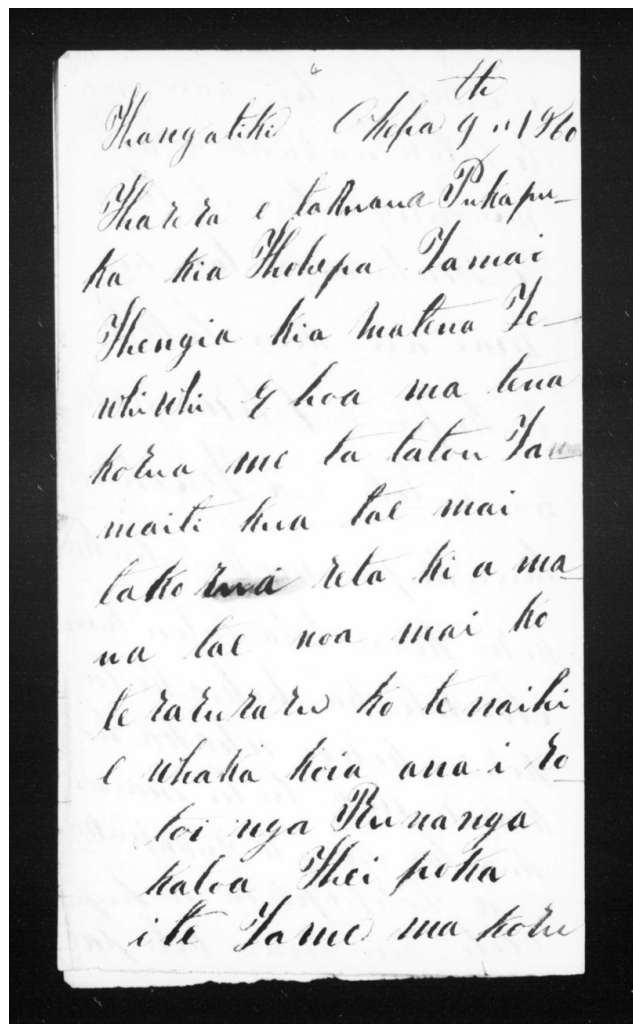 Whangatiki Okepa 9th 1860
Wharera e takuana Pukapu-
ka kia Whohepa Tamai
Whengia kia Matena Te-
whiwhi E hoa ma tena
korua me ta tatou Ta
maiti kua tae mai
tako rua reta ki a ma
ua tae noa mai ko
te raruraru ko te naihi
e whaka koia ana i ro
toi nga Runanga
katoa Whei poka
i te Tame ma koru